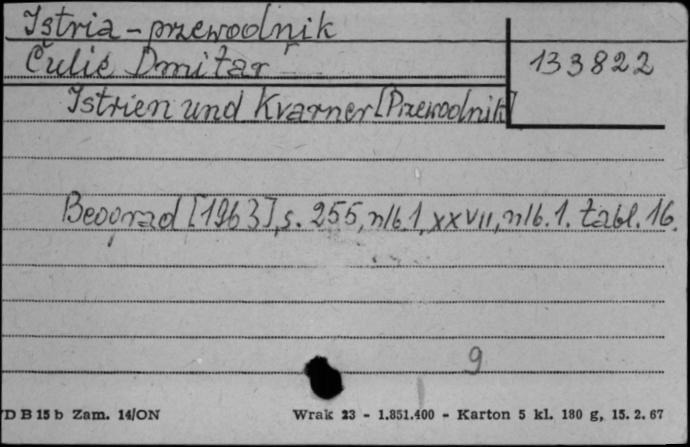 Istria - przewodnik
Čulić Dmitar
133822
Istrien und Kvarner [Przewodnik]
Beograd [1963], s. 255, nlb. 1, XXVII, nlb. 1. tabl. 16.
9
D B 15 b Zam. 14/ON
Wrak 23 - 1.851.400 - Karton 5 kl. 180 g, 15. 2. 67